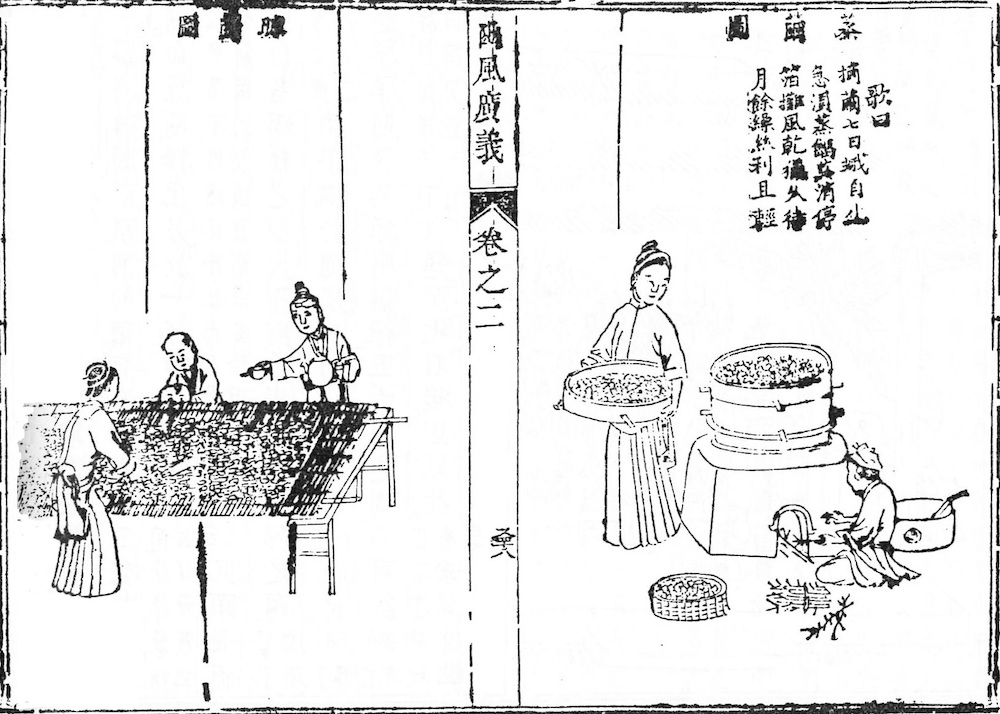 蒸繭圖
歌曰
摘繭七日蛾自生
急湏蒸餾莫消停
箔攤風乾猶久待
月餘繅絲利且輕
豳風廣義
卷之二
繭圖